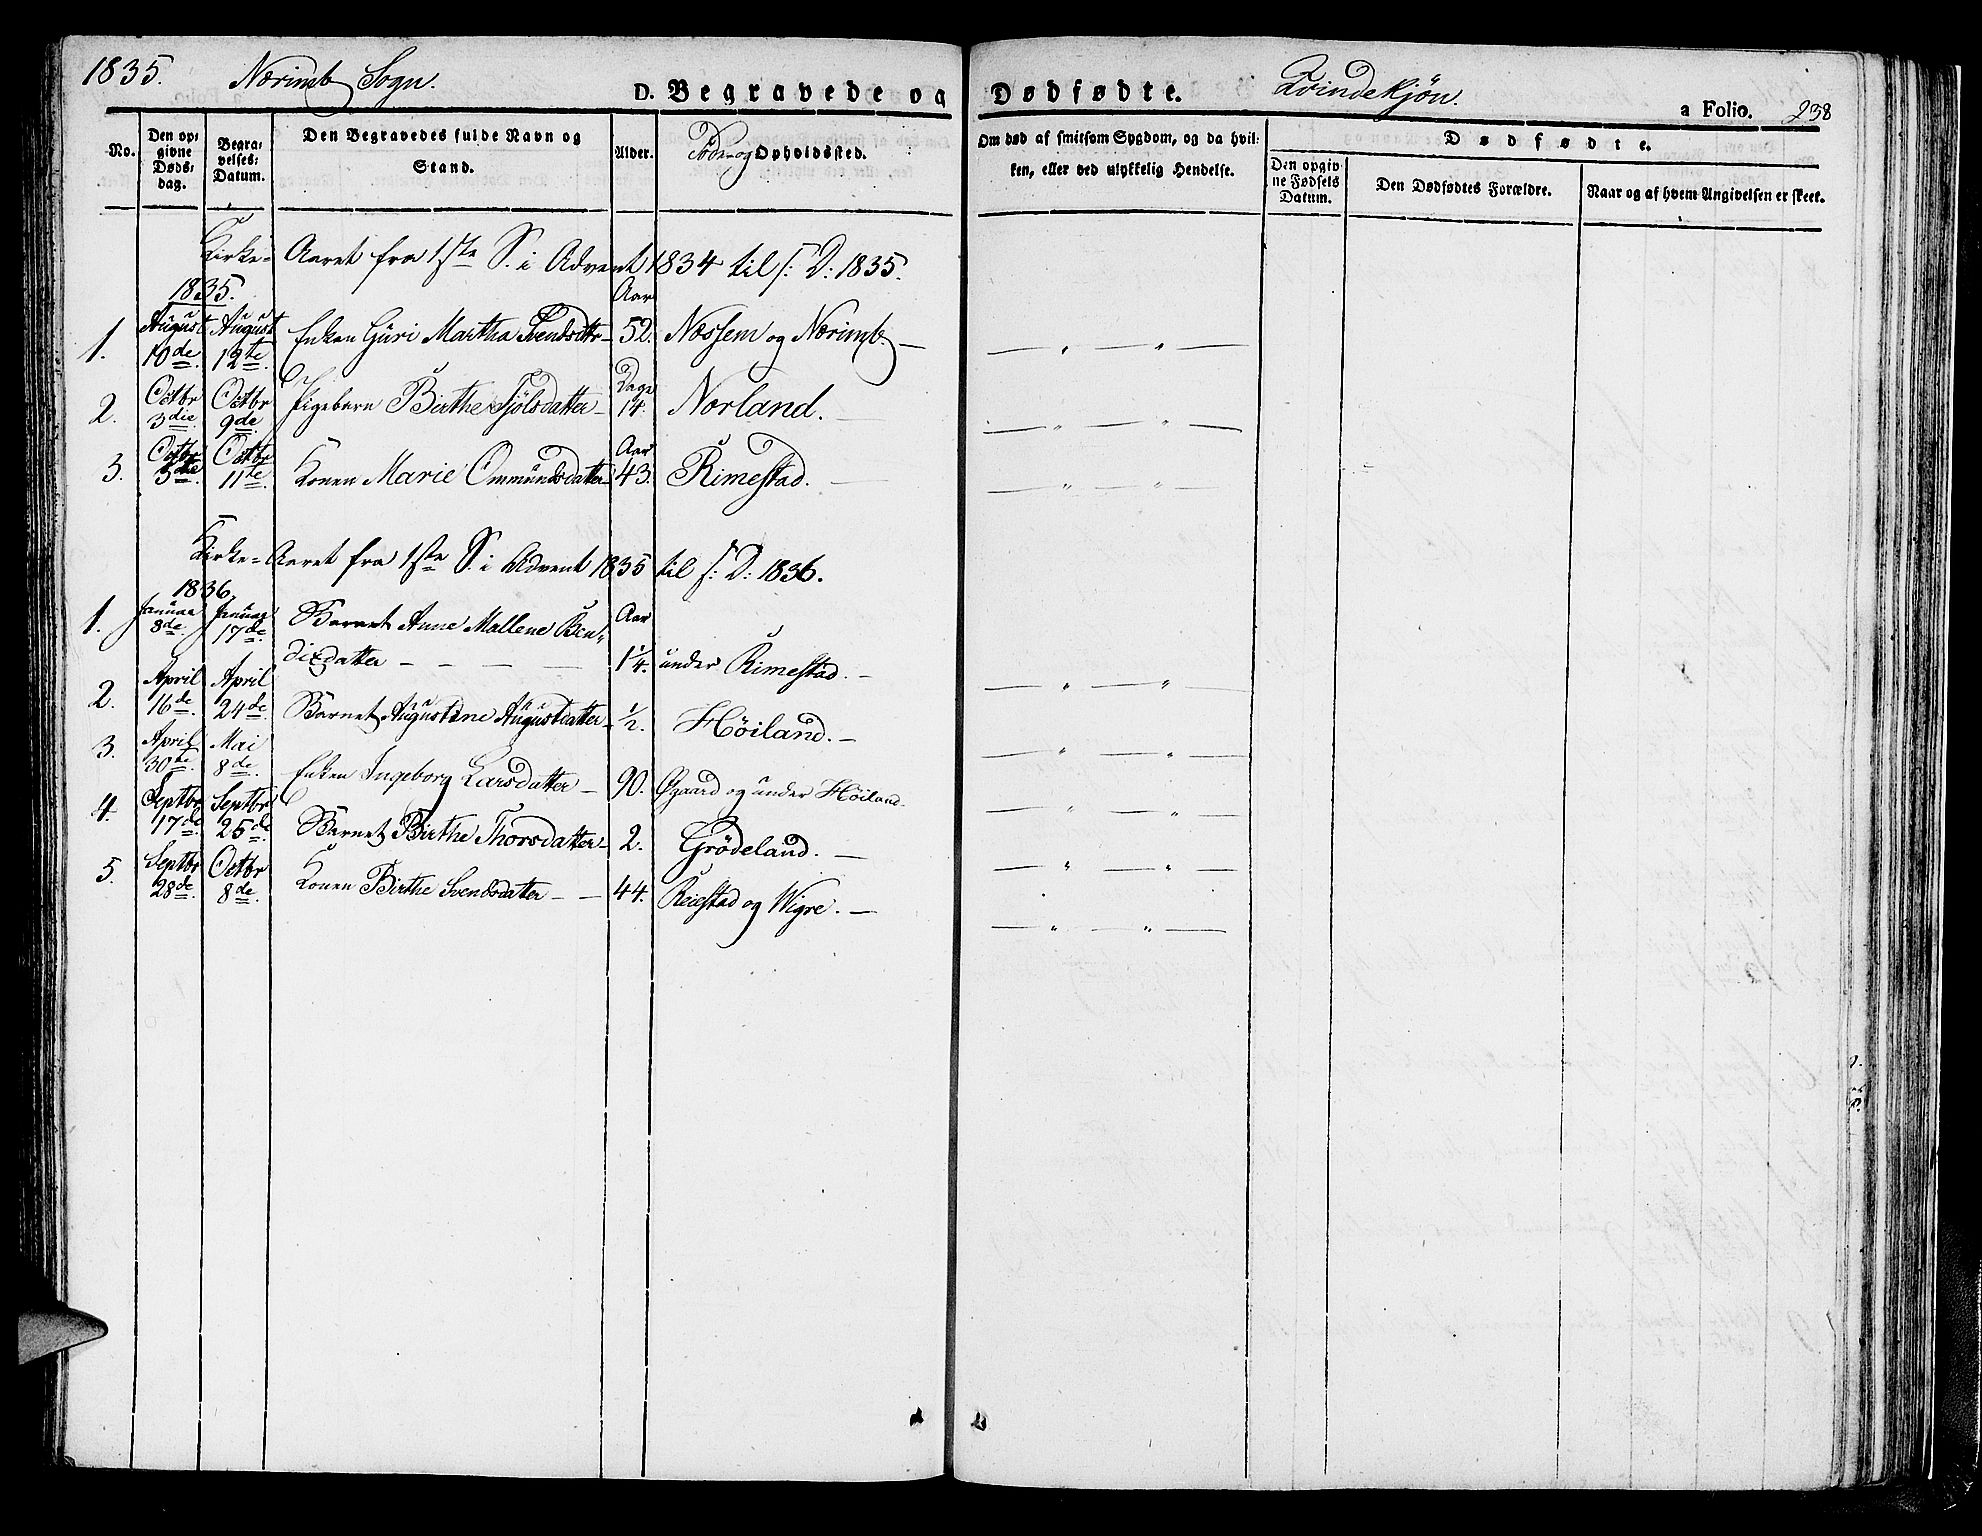 1835. Nærimb Sogn. D. Begravede og Dødfødte. Qvindekjøn. a Folio. 238
No. Den opgivne Dødsdag. Begravelses-Datum. Den Begravedes fulde Navn og Stand. Alder. Føde- og Opholdssted. Om død af smitsom Sygdom, og da hvilken, eller ved ulykkelig Hendelse. Dødfødte.
Den opgivne Fødsels Datum. Den Dødfødtes Forældre. Naar og af hvem Angivelsen er skeet.
Kirke-Aaret fra 1ste S. i Advent 1834 til s: D: 1835.
1835. Aar
1. August 10de. August 12te. Enken Guri Martha Svendsdttr 52. Næssem og Nærimb. — „ — „ —
Dage
2. Octbr 3die. Octbr 9de. Pigebarn Birthe Tjölsdatter 14. Norland. — „ — „ —
Aar
3. Octbr 5te. Octbr 11te. Konen Marie Ommundsdatter 43. Rimestad. — „ — „ —
Kirke-Aaret fra 1ste S. i Advent 1835 til s: D: 1836.
1836.
1. Januar 8de. Januar 17de. Barnet Anne Mallene Ben- Aar
dixdatter — — — — 1/4. under Rimestad. — „ — „ —
2. April 16de. April 24de. Barnet Augustine Augustdatter 1/2. Höiland. — „ — „ —
3. April 30te. Mai 8de. Enken Ingeborg Larsdatter — 90. Øgaard og under Höiland. — „ — „ —
4. Septbr 17de. Septbr 25de. Barnet Birthe Thorsdatter 2. Grödeland. — „ — „ —
5. Septbr 28de. Octbr 8de. Konen Birthe Svendsdatter — — 44. Reiestad og Wigre. — „ — „ —